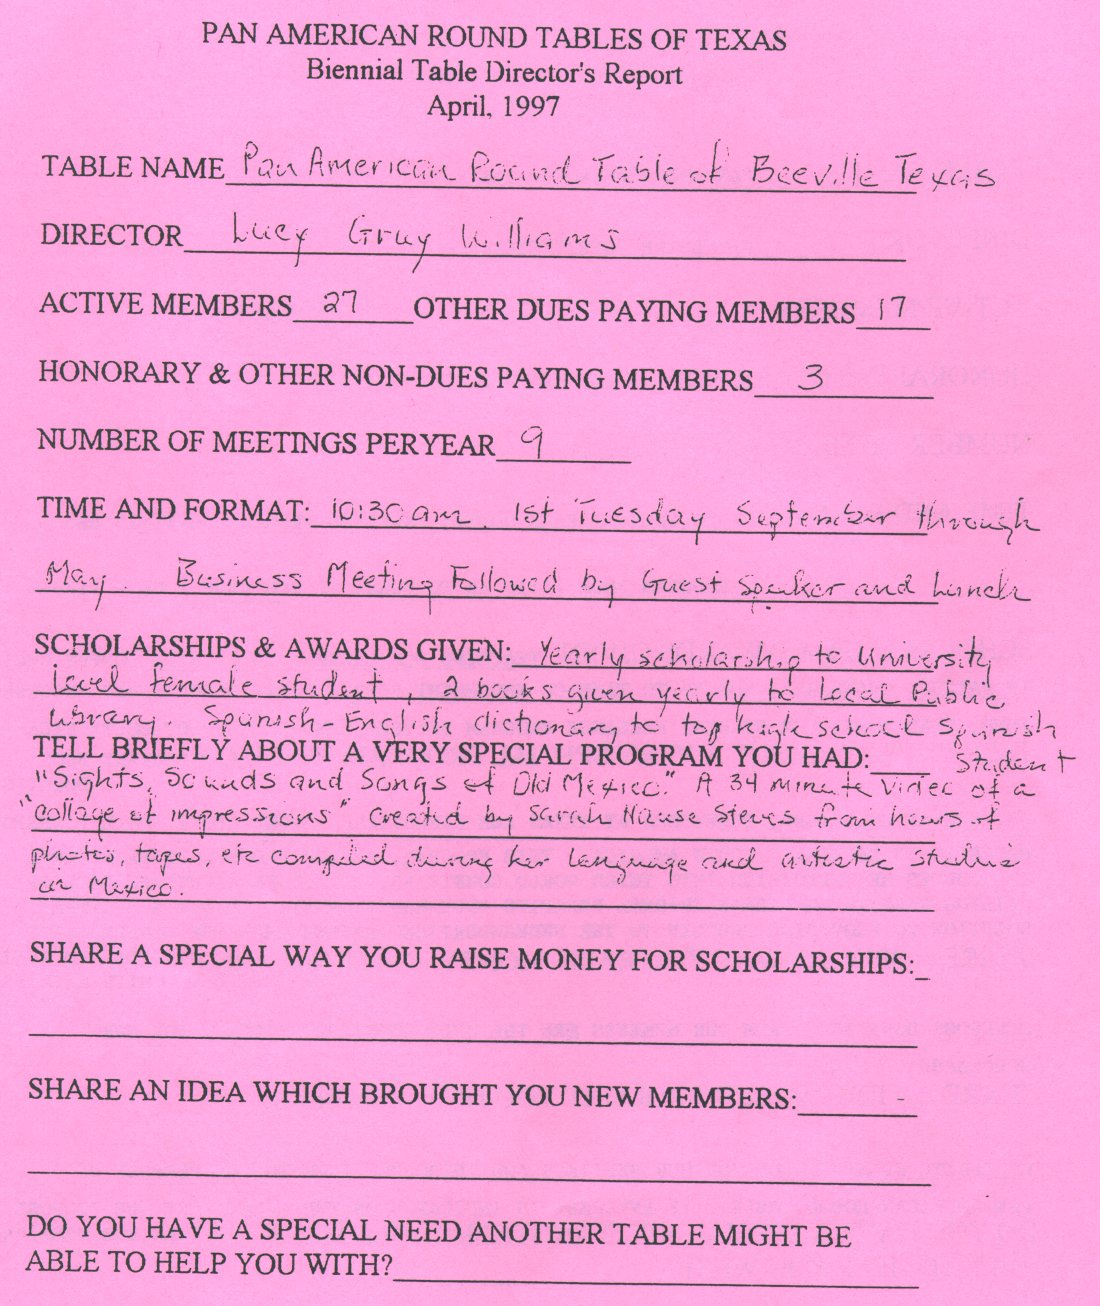 PAN AMERICAN ROUND TABLES OF TEXAS
Biennial Table Director's Report
April, 1997
TABLE NAME Pan American Round Table of Beeville Texas
DIRECTOR Lucy Gray Williams
ACTIVE MEMBERS 27 OTHER DUES PAYING MEMBERS 17
HONORARY & OTHER NON-DUES PAYING MEMBERS 3
NUMBER OF MEETINGS PERYEAR 9
TIME AND FORMAT: 10:30 am. 1st Tuesday September through
May. Business Meeting Followed by Guest Speaker and Lunch
SCHOLARSHIPS & AWARDS GIVEN: Yearly scholarship to University
level female student, 2 books given yearly to Local Public
Library. Spanish-English dictionary to top high school Spanish
TELL BRIEFLY ABOUT A VERY SPECIAL PROGRAM YOU HAD: Student
"Sights, Sounds and Songs of Old Mexico." A 34 minute Video of a
"collage of impressions" created by Sarah Hause Steves from hours of
photos, tapes, etc compiled during her language and artistic studies
in Mexico.
SHARE A SPECIAL WAY YOU RAISE MONEY FOR SCHOLARSHIPS:
SHARE AN IDEA WHICH BROUGHT YOU NEW MEMBERS: -
DO YOU HAVE A SPECIAL NEED ANOTHER TABLE MIGHT BE
ABLE TO HELP YOU WITH?